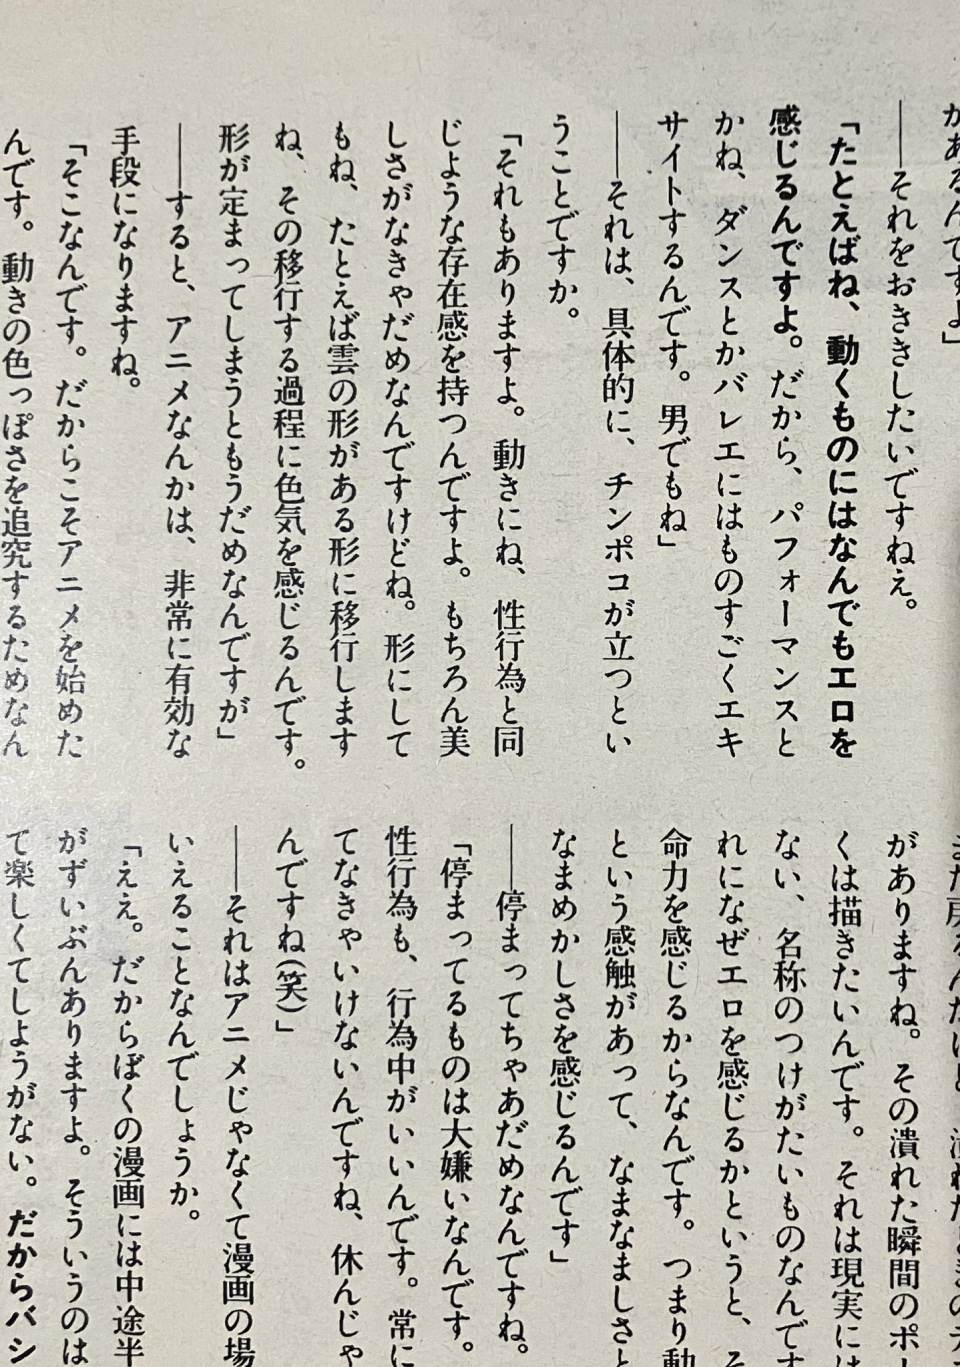 があるんですよ」
――それをおききしたいですねえ。
「たとえばね、動くものにはなんでもエロを
感じるんですよ。だから、パフォーマンスと
かね、ダンスとかバレエにはものすごくエキ
サイトするんです。男でもね」
――それは、具体的に、チンポコが立つとい
うことですか。
「それもありますよ。動きにね、性行為と同
じような存在感を持つんですよ。もちろん美
しさがなきゃだめなんですけどね。形にして
もね、たとえば雲の形がある形に移行します
ね、その移行する過程に色気を感じるんです。
形が定まってしまうともうだめなんですが」
――すると、アニメなんかは、非常に有効な
手段になりますね。
「そこなんです。だからこそアニメを始めた
んです。動きの色っぽさを追究するためなん
がありますね。その潰れた瞬間のポ
くは描きたいんです。それは現実には
ない、名称のつけがたいものなんです
れになぜエロを感じるかというと、そ
命力を感じるからなんです。つまり動
という感触があって、なまなましさと
なまめかしさを感じるんです」
――停まってちゃあだめなんですね。
「停まってるものは大嫌いなんです。
性行為も、行為中がいいんです。常に
てなきゃいけないんですね、休んじゃ
んですね(笑)」
――それはアニメじゃなくて漫画の場
いえることなんでしょうか。
「ええ。だからぼくの漫画には中途半
がずいぶんありますよ。そういうのは
て楽しくてしようがない。だからバシ